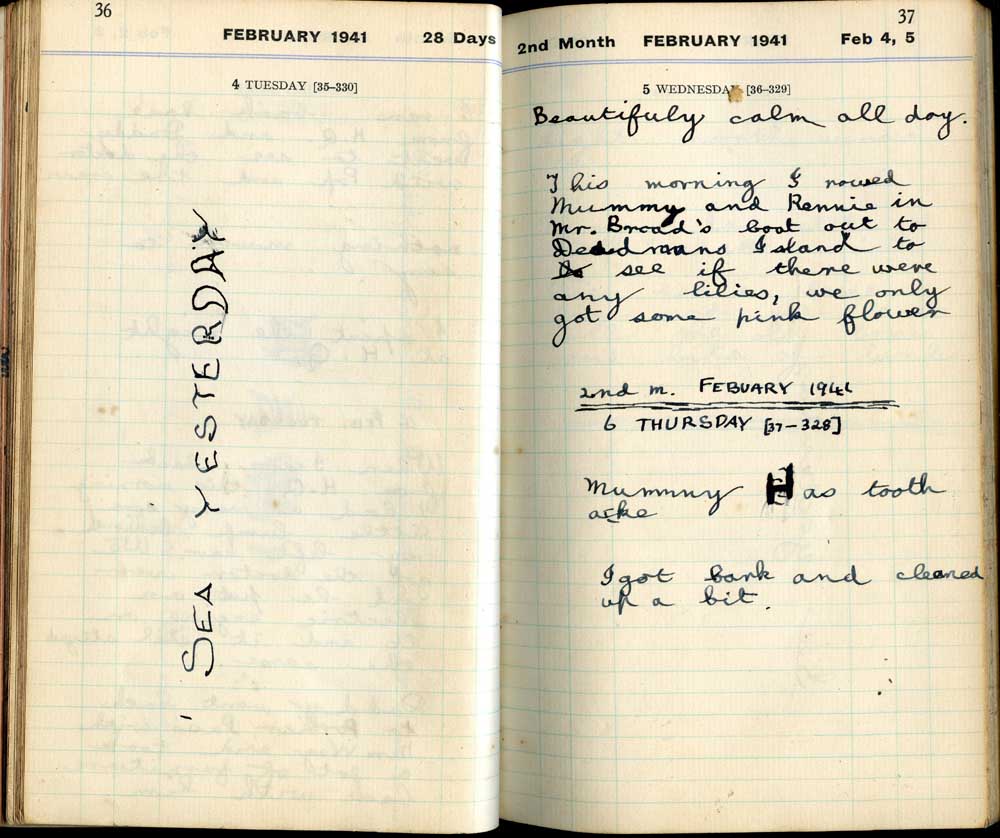 36
FEBRUARY 1941 28 Days
4 TUESDAY [35–330]
SEA YESTERDAY
37
2nd Month FEBRUARY 1941 Feb 4, 5
5 WEDNESDAY [36–329]
Beautifuly calm all day.
This morning I rowed
Mummy and Rennie in
Mr. Broad's boat out to
Deadmans Island to
see if there were
any lilies, we only
got some pink flower
2nd m. FEBUARY 1941
6 THURSDAY [37–328]
Mummy Has tooth
acke
I got bark and cleaned
up a bit.